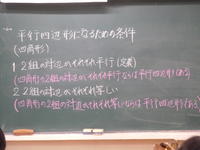 平行四辺形になるための条件
(四角形)
1 2組の対辺がそれぞれ平行(定義)
(四角形の2組の対辺がそれぞれ平行ならば平行四辺形である)
2 2組の対辺がそれぞれ等しい
(四角形の2組の対辺がそれぞれ等しいならば平行四辺形である)